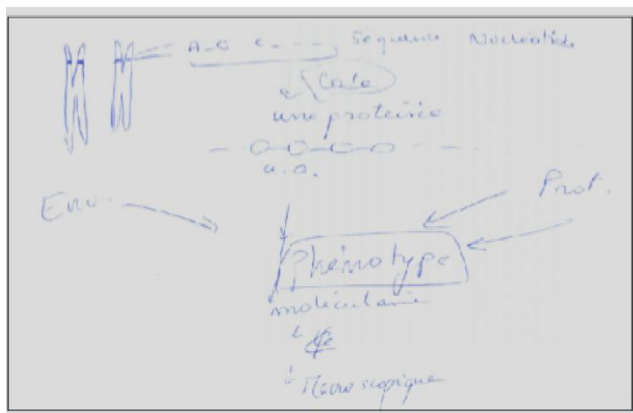 A-G C - - - Séquence Nucléotide
Code
une protéine
a.a.
Env.
Prot.
Phénotype
moléculaire
Macroscopique